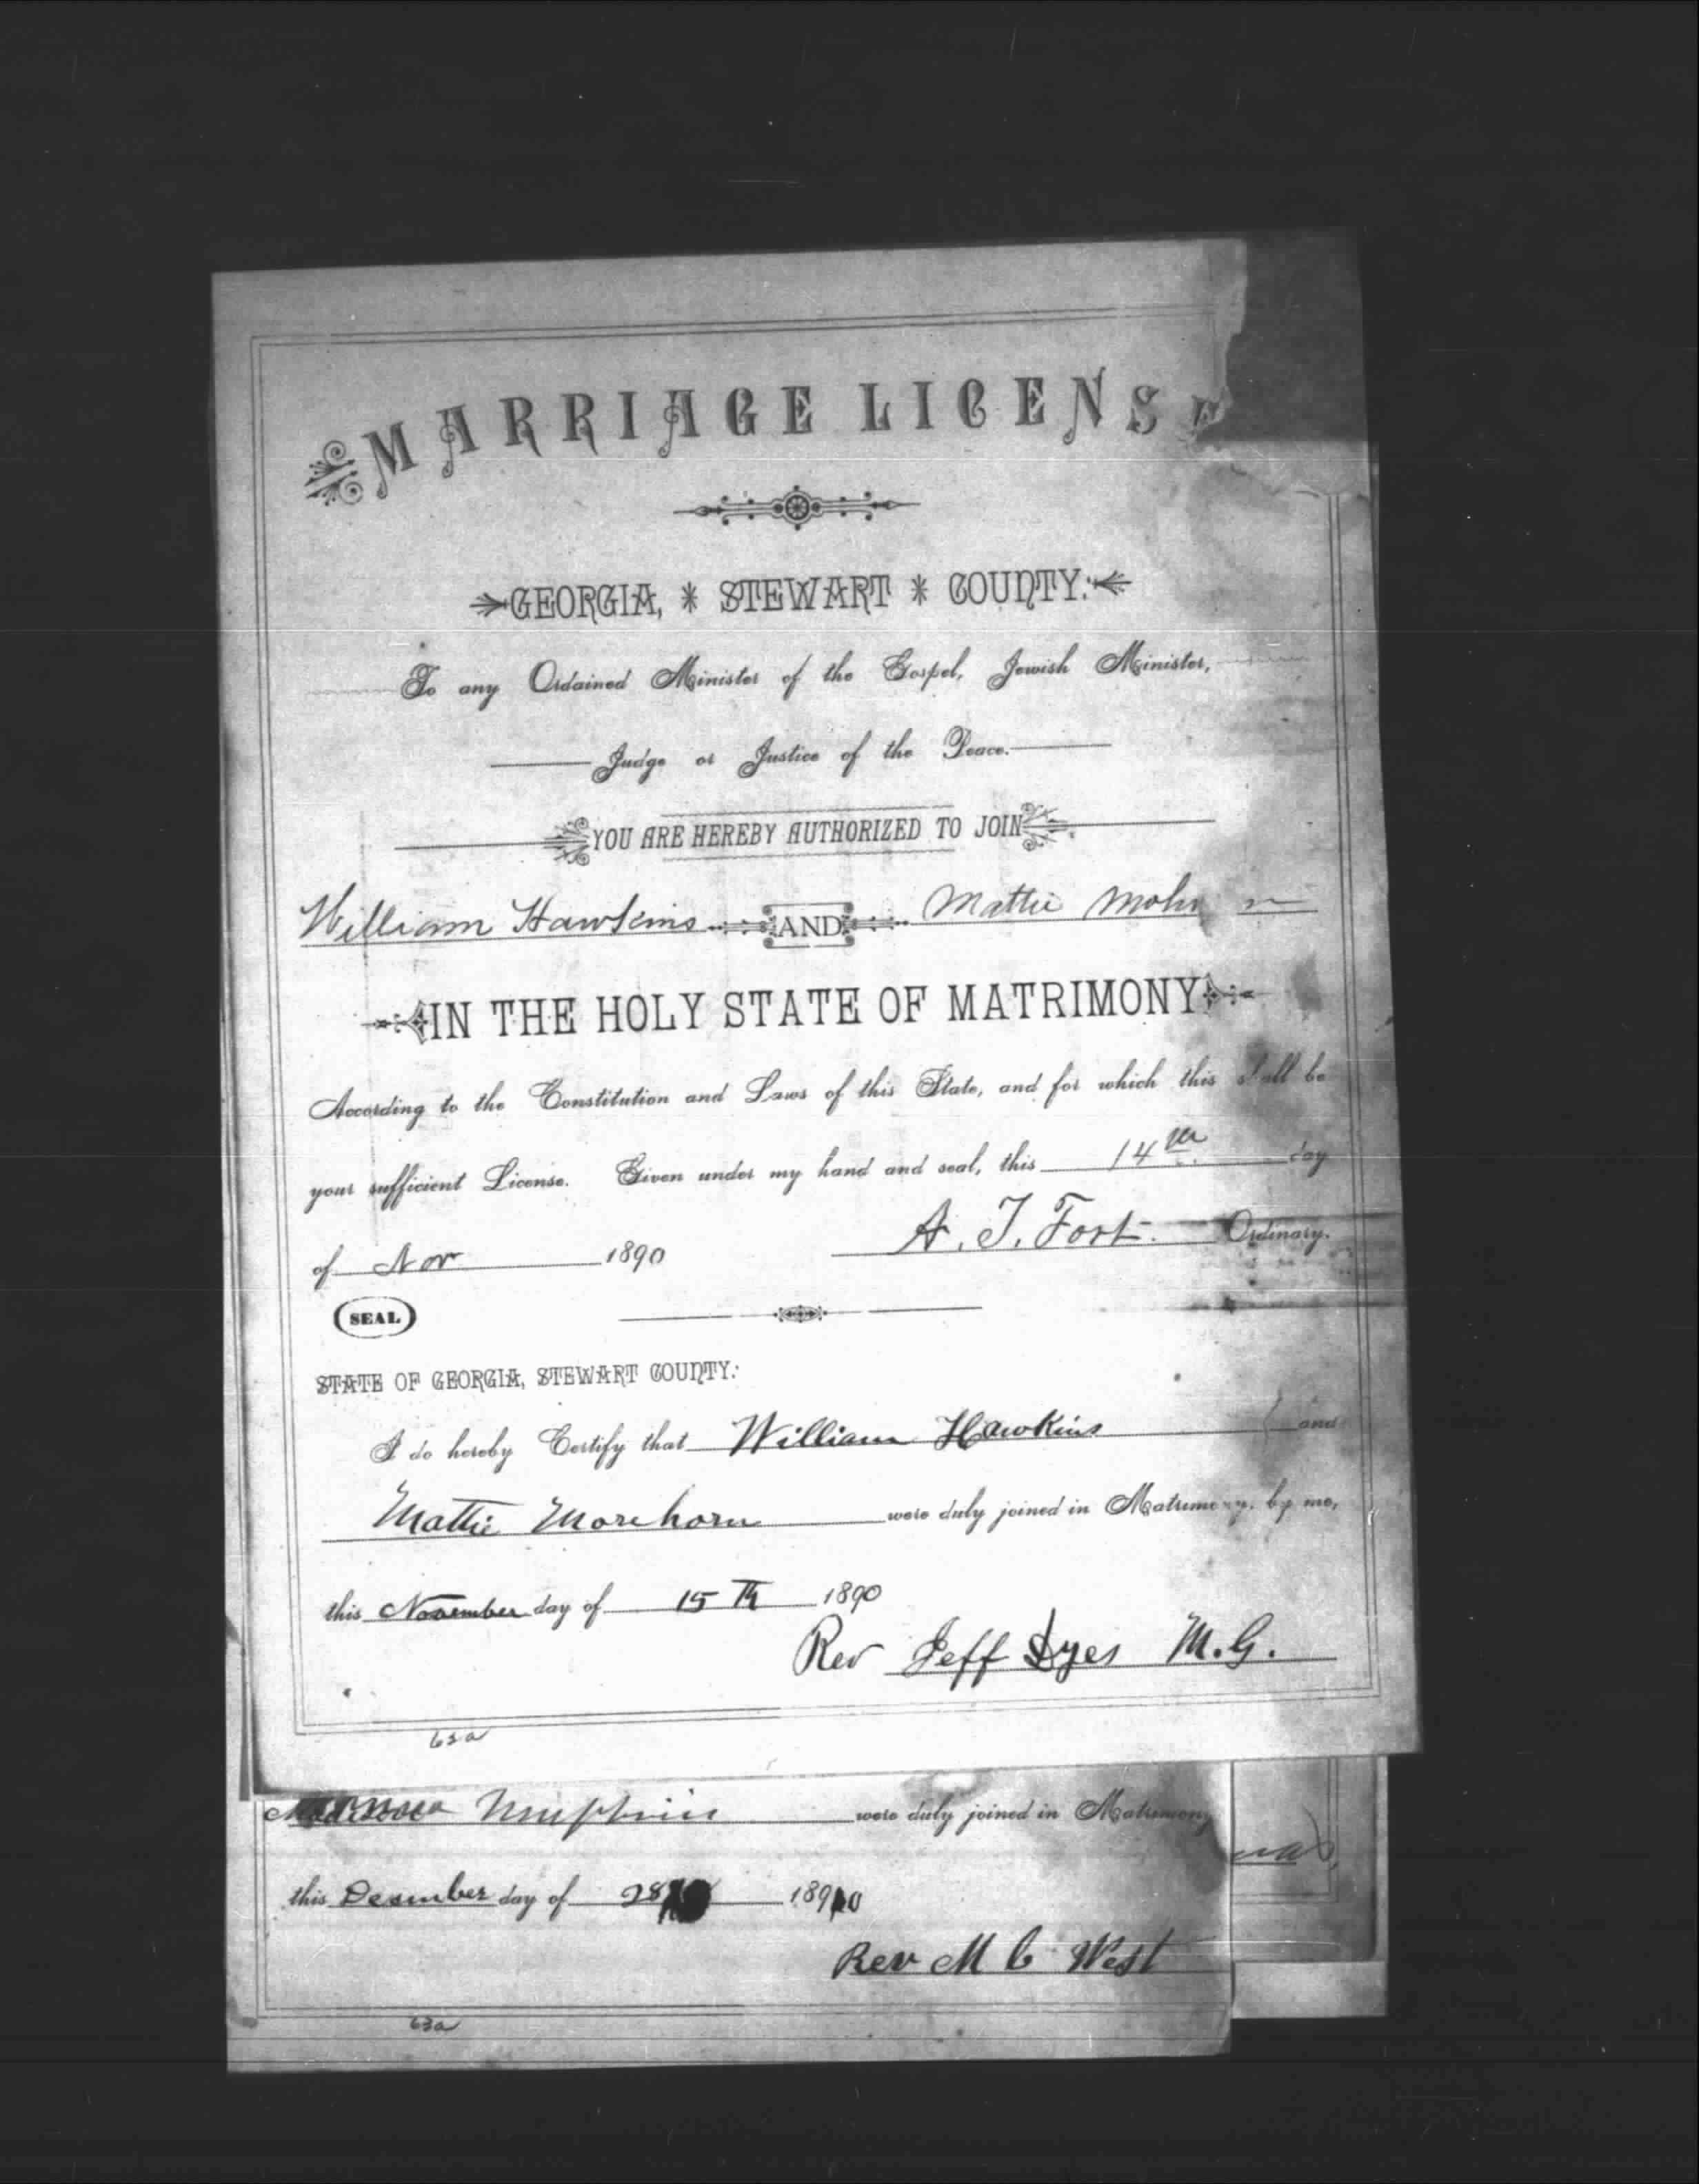 MARRIAGE LICENSE
GEORGIA, * STEWART * COUNTY:
To any Ordained Minister of the Gospel, Jewish Minister,
Judge or Justice of the Peace.
YOU ARE HEREBY AUTHORIZED TO JOIN
William Hawkins AND Mattie
IN THE HOLY STATE OF MATRIMONY
According to the Constitution and Laws of this State, and for which this shall be
your sufficient License. Given under my hand and seal, this 14th day
of Nov 1890 A. T. Fort. Ordinary.
SEAL
STATE OF GEORGIA, STEWART COUNTY:
I do hereby Certify that William Hawkins and
Mattie Morehorn were duly joined in Matrimony, by me,
this November day of 15th 1890
Rev Jeff Dyes M.G.
were duly joined in Matrimony
this Desember day of 28 1890
Rev M C West
63a